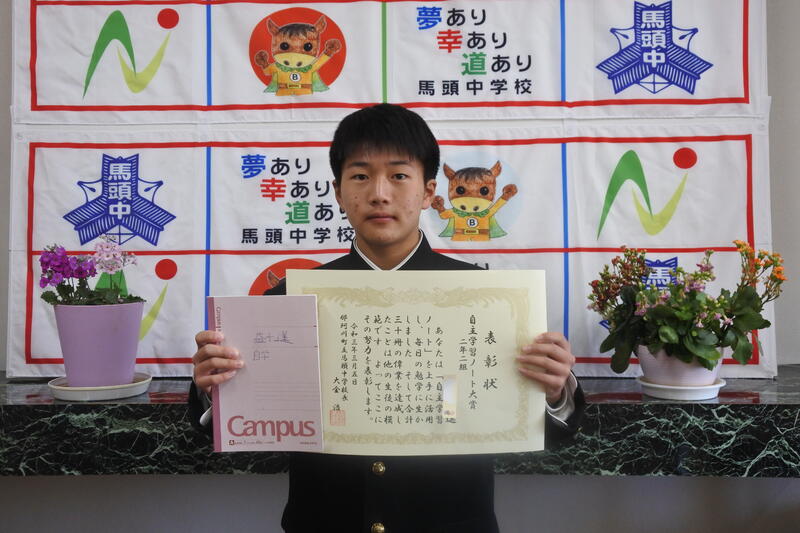 夢あり
幸あり
道あり
馬頭中学校
馬頭中
B
馬頭中
夢あり
幸あり
道あり
馬頭中学校
B
表彰状
自主学習ノート大賞
二年二組
あなたは「自主学習
ノート」を上手に活用
し、毎日の勉学に生か
しました。そして合計
三十冊の偉業を達成し
たことは他の生徒の模
範です。よってここに
その努力を表彰します。
令和三年三月五日
那珂川町立馬頭中学校長
大金
自学
Campus